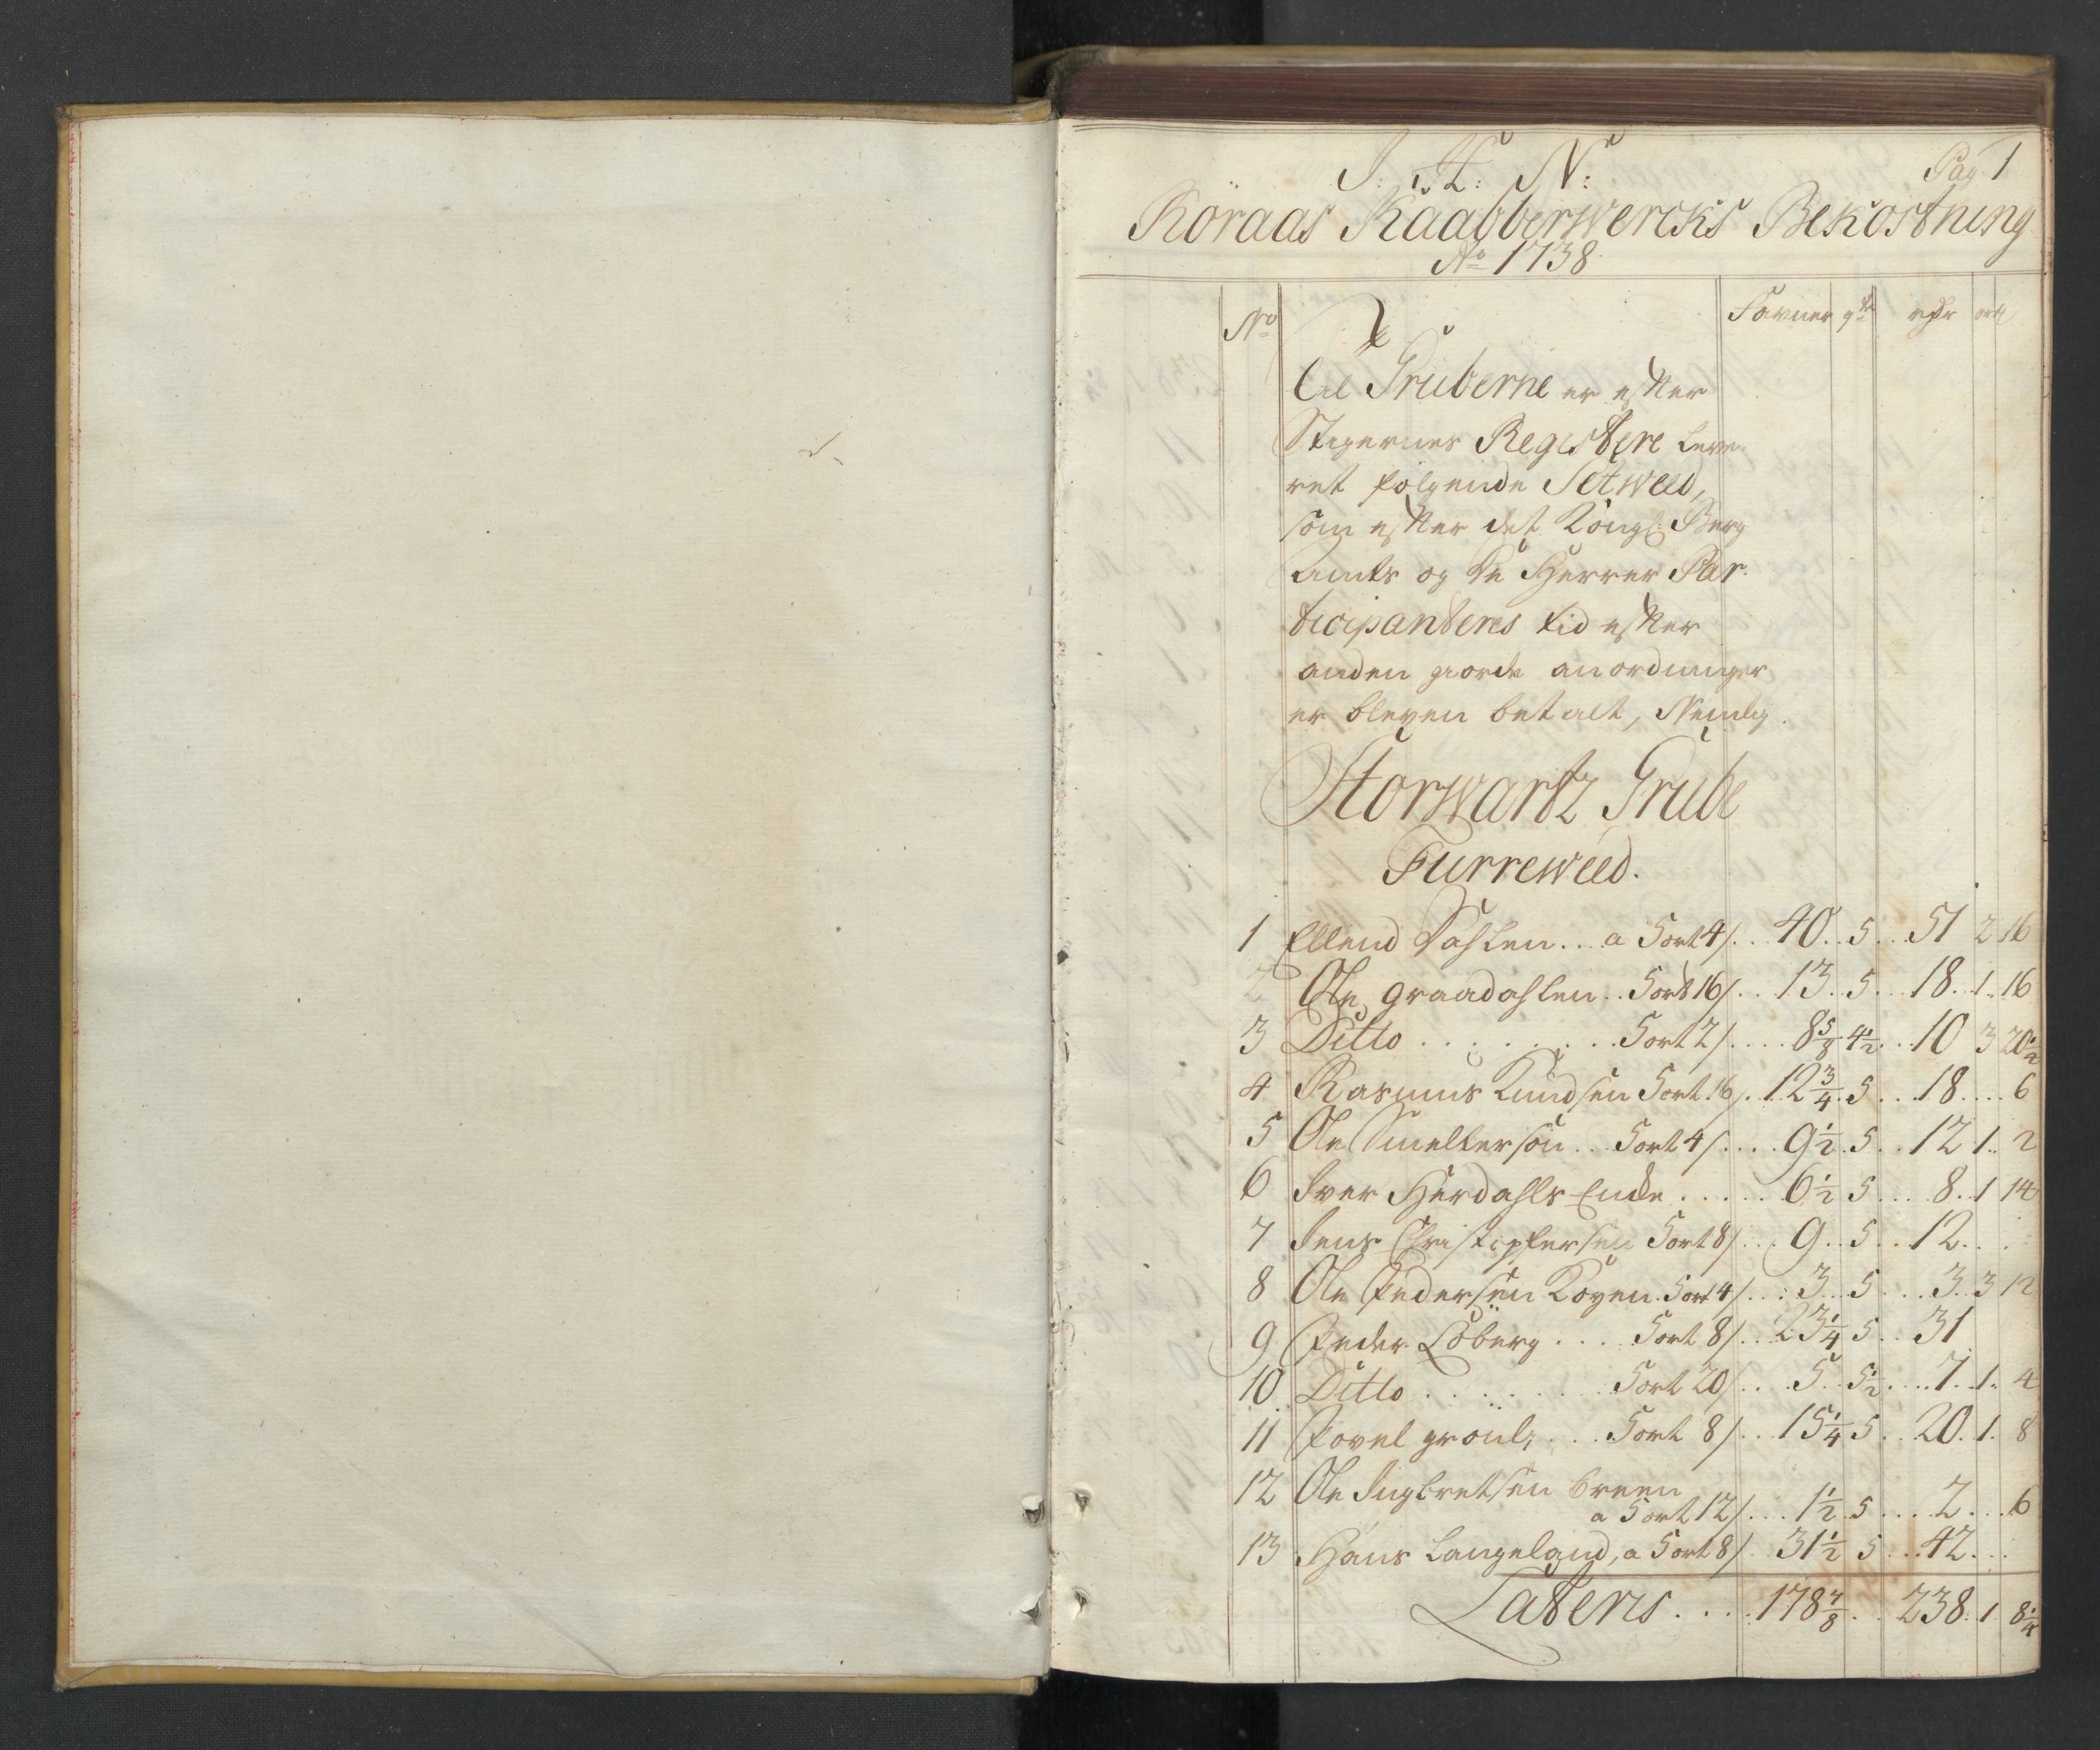 J: H: N:
Pag 1
Röraas Kaabberwercks Bekostning
Aō 1738
No
Favner qr rdr ort
Til Gruberne er efter
Stigernes Registere leve-
ret følgende Setweed,
som efter det Kongl: Berg
Amts og de Herrer Par-
ticipanteres tid efter
anden giorde anordninger
er bleven betalt, Nemlig
Storwartz Grube
Furreweed.
1 Ellend Dahlen... a 5ort 4/. . . 40. . 5. . . 51 2 16
2 Ole graadahlen. . 5ort 16/. . 13. . 5. . . 18. 1. . 16
3 Ditto . . . . . . . . 5ort 2/. . . . 8 5/8 4 1/2. . . 10 3 20 1/2
4 Rasmus Knudsen 5ort 16/. 12 3/4. 5. . . 18. . . . 6
5 Ole Smellersøn. . . 5ort 4/. . . . 9 1/2. 5. . 12 1. . 2
6 Iver Hærdahls Encke . . . . . 6 1/2 5. . . . 8. . 1 14
7 Jens Christophersen 5ort 8/. . . 9. . 5. . 12. . .
8 Ole Pedersen Koyen. 5ort 4/. . . 3. . . 5. . . . 3. . 3 12
9 Peder Løberg . . . . 5ort 8/. . 23 1/4 5. . 31
10 Ditto . . . . . . . 5ort 20/. . . 5. . 5 1/2. . . . 7. . 1. . 4
11 Povel grøuli . . . 5ort 8/. . 15 1/4 5. . 20. . 1. 8
12 Ole Ingbretsen Breen
a 5ort 12/. . . . 1 1/2. 5. . . . 2. . . . 6
13 Hans Langeland, a 5ort 8/. 31 1/2 5. . . 42. . .
Lateris. . . . 178 7/8. . . 238. 1 8 1/4